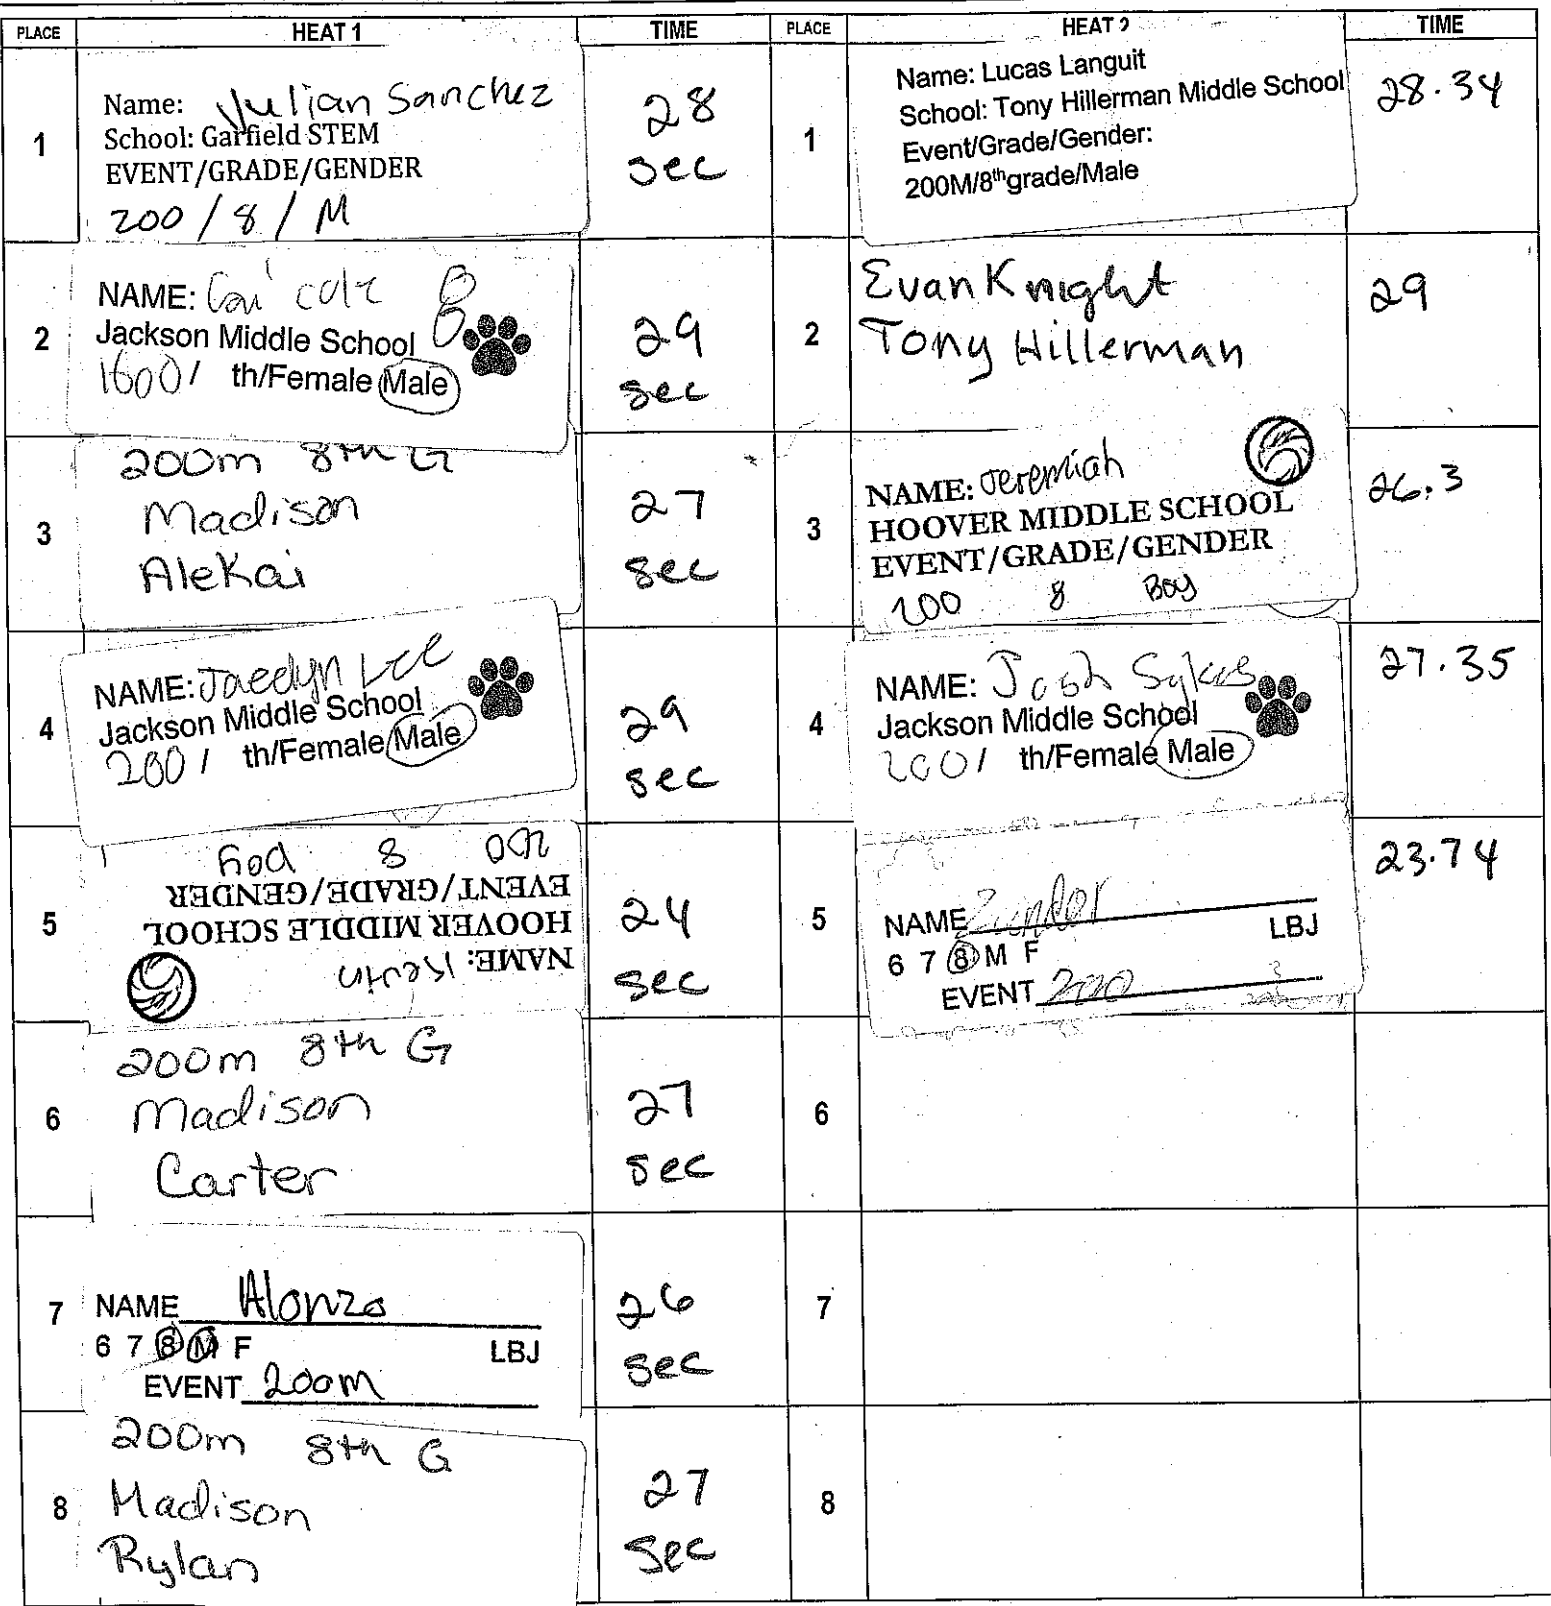 PLACE HEAT 1 TIME PLACE HEAT 2 TIME
1
Name: Julian Sanchez
School: Garfield STEM
EVENT/GRADE/GENDER
200 / 8 / M
28
sec
1
Name: Lucas Languit
School: Tony Hillerman Middle School
Event/Grade/Gender:
200M/8th grade/Male
28.34
2
NAME: cole 8
Jackson Middle School
1600/ th/Female Male
29
sec
2
Evan Knight
Tony Hillerman
29
3
200m 8th G
Madison
AleKai
27
sec
3
NAME: Jeremiah
HOOVER MIDDLE SCHOOL
EVENT/GRADE/GENDER
200 8 Boy
26.3
4
NAME: Jaedyn Lee
Jackson Middle School
200 / th/Female Male
29
sec
4
NAME: Josh Sykes
Jackson Middle School
200/ th/Female Male
27.35
5
NAME:
HOOVER MIDDLE SCHOOL
EVENT/GRADE/GENDER
200 8 Boy
24
sec
5
NAME LBJ
6 7 8 M F
EVENT 200
23.74
6
200m 8th G
Madison
Carter
27
sec
6
7
NAME Alonzo
6 7 8 M F LBJ
EVENT 200m
26
sec
7
8
200m 8th G
Madison
Rylan
27
sec
8